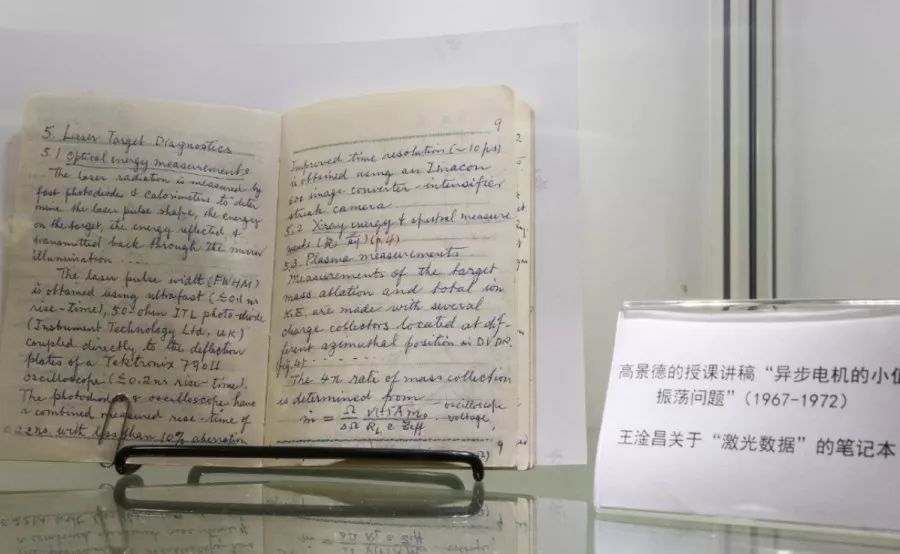 5. Laser Target Diagnostics
5.1 Optical energy measurements
The laser radiation is measured by
fast photodiode & calorimeters to deter
mine the laser pulse shape, the energy
on the target, the energy reflected &
transmitted back through the mirror
illumination .....
The laser pulse width (FWHM)
is obtained using ultrafast (≤0.1 ns
rise-time), 50-ohm ITL photo-diode
(Instrument Technology Ltd, U.K)
coupled directly to the deflection
plates of a Tektronix 7904
oscilloscope (≤0.2ns rise-time).
The photodiode & oscilloscope have
a combined measured rise-time of
0.22ns. with less than 10% aberration
9
Improved time resolution (~10 ps)
is obtained using an Imacon
image converter-intensifier
streak camera
5.2 X-ray energy & spectral measure
ments (p.4)
5.3. Plasma measurements
Measurements of the target
mass ablation and total ion
K.E. are made with several
charge collectors located at dif-
ferent azimuthal position in
(fig.4)
The 4π rate of mass collection
is determined from
ṁ = Ω/ΔΩ V(t)A m₀/R_L e Z_eff oscilloscope voltage,
9
高景德的授课讲稿“异步电机的小值
振荡问题”（1967-1972）
王淦昌关于“激光数据”的笔记本